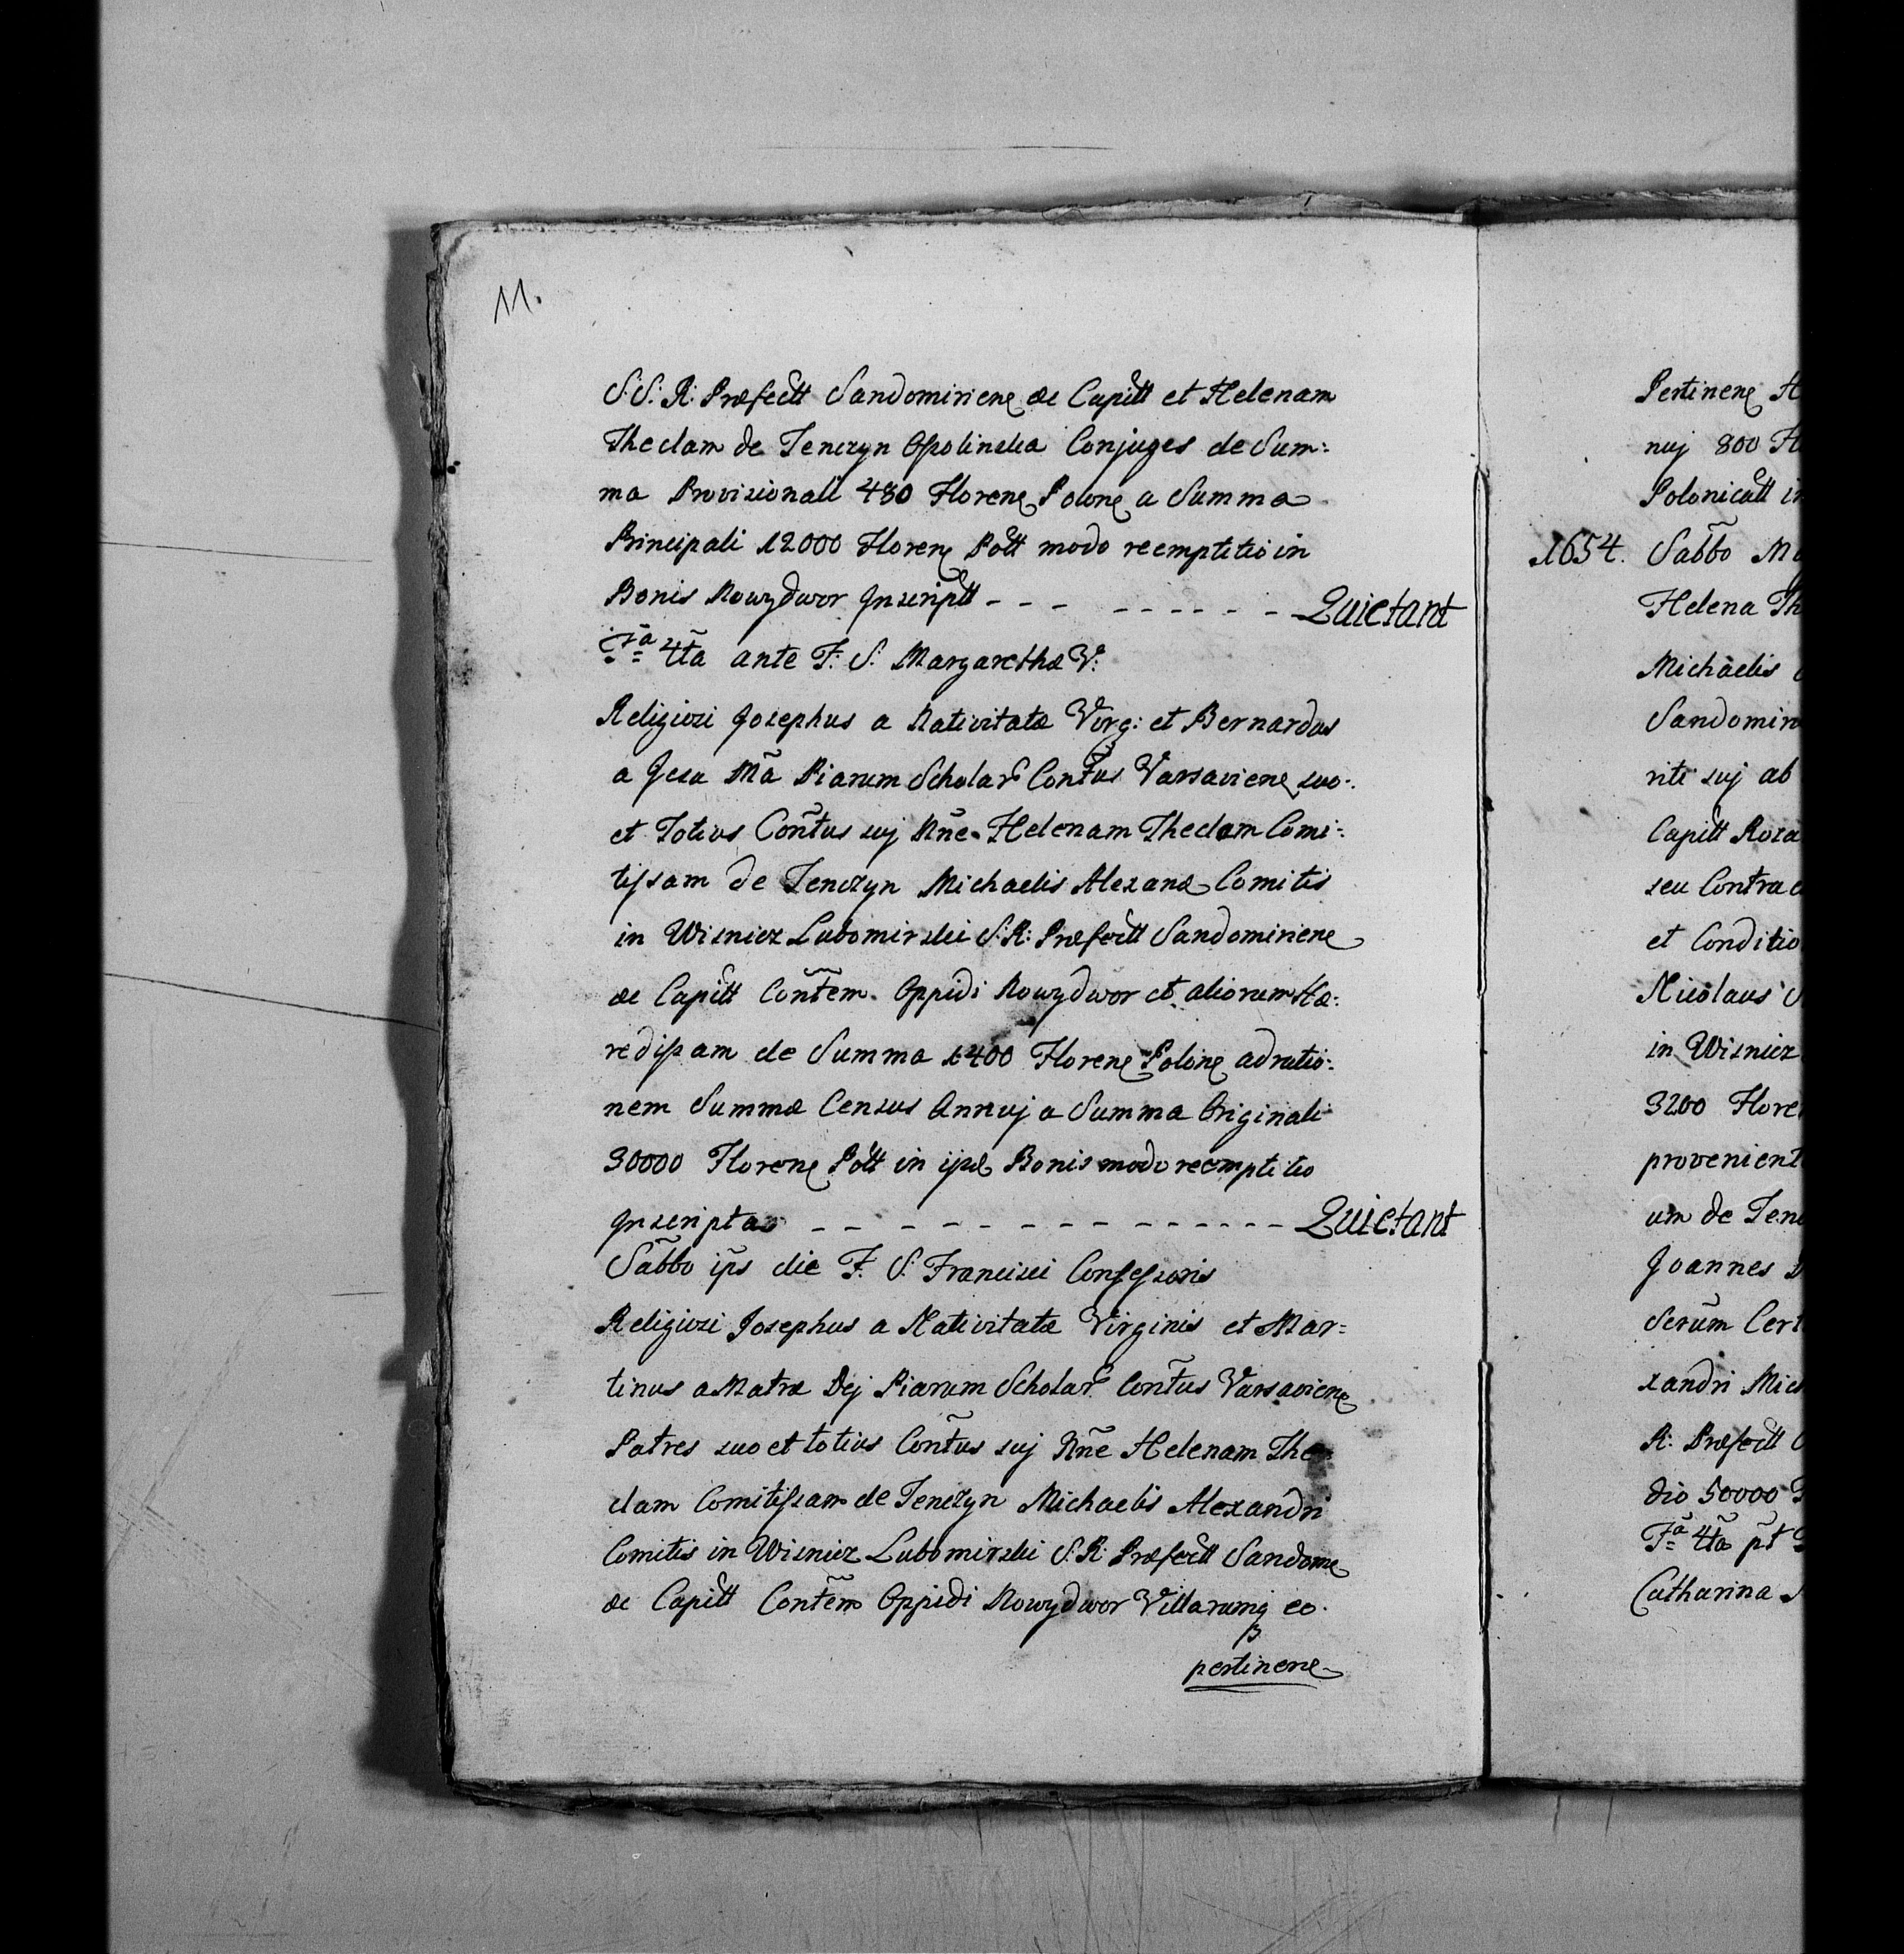 11.
S: S: R: Præfectt Sandomiriene ac Capitt et Helenam
Theclam de Tenczyn Opolinska Conjuges de Sum:
ma Provisionali 480 Florene Polone a Summa
Principali 12000 Florene Poltt modo reemptitio in
Bonis Nowydwor Inscriptt - - - - - - - - - Quietant
Fa 4ta ante F: S: Margarethæ V:
Religiosi Josephus a Nativitatæ Virg: et Bernardus
a Jesu Ma Piarum Scholar Contus Varsaviene suo:
et Totius Contus suj Nne Helenam Theclam Comi:
tissam de Tenczyn Michaelis Alexand Comitis
in Wisnicz Lubomirski S: R: Præfectt Sandomiriene
ac Capitt Contem Oppidi Nowydwor et aliorum Hæ:
redissam de Summa 1400 Florene Polone ad ratio:
nem Summæ Census Annuj a Summa Originali
30000 Florene Poltt in ipsis Bonis modo reemptitio
Inscripta - - - - - - - - - - - - - - - Quietant
Sabbo ips die F. S: Francisci Confessoris
Religiosi Josephus a Nativitatæ Virginis et Mar=
tinus a Matre Dej Piarum Scholar Contus Varsaviene
Patres suo et totius Contus suj Nne Helenam The
clam Comitissam de Tenczyn Michaelis Alexandri
Comitis in Wisnicz Lubomirski S: R: Præfectt Sandome
ac Capitt Contem Oppidi Nowydwor Villarumq eo
pertinene
Pertinene H
nuj 800 Fl
Polonicatt in
1654. Sabbo
Helena Th
Michaelis
Sandomir
riti suj ab
Capitt Roza
seu Contrac
et Conditio
Nicolaus
in Wisnicz
3200 Flore
provenient
um de Ten
Joannes
Serum Cert
xandri Mich
R: Præfectt
dio 50000
Fa 4ta pt
Catharina